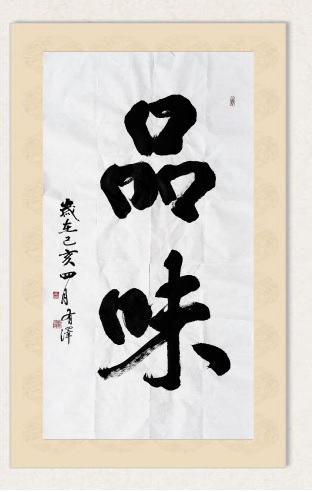 品味
歲在己亥四月有澤